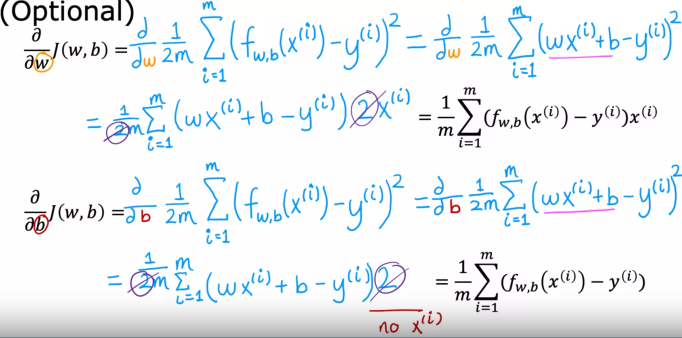 (Optional)
∂/∂w J(w, b) = d/dw 1/2m ∑_{i=1}^{m} (f_{w,b}(x^{(i)}) − y^{(i)})^2 = d/dw 1/2m ∑_{i=1}^{m} (wx^{(i)} + b − y^{(i)})^2
= 1/2m ∑_{i=1}^{m} (wx^{(i)} + b − y^{(i)}) 2x^{(i)} = 1/m ∑_{i=1}^{m} (f_{w,b}(x^{(i)}) − y^{(i)})x^{(i)}
∂/∂b J(w, b) = d/db 1/2m ∑_{i=1}^{m} (f_{w,b}(x^{(i)}) − y^{(i)})^2 = d/db 1/2m ∑_{i=1}^{m} (wx^{(i)} + b − y^{(i)})^2
= 1/2m ∑_{i=1}^{m} (wx^{(i)} + b − y^{(i)}) 2 = 1/m ∑_{i=1}^{m} (f_{w,b}(x^{(i)}) − y^{(i)})
no x^{(i)}